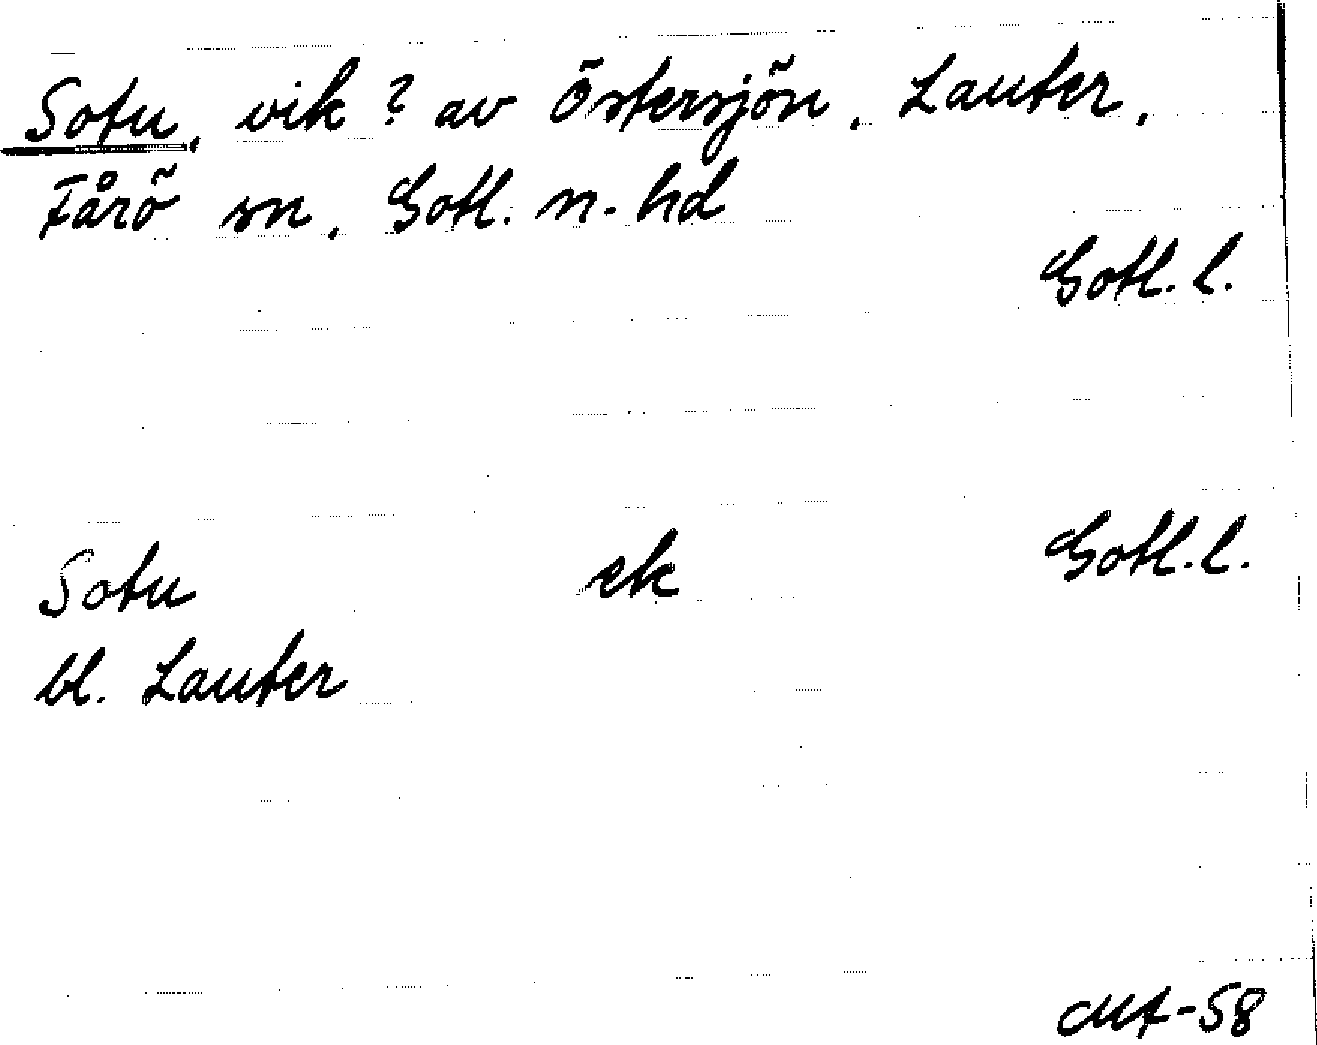 Sotu, vik? av Östersjön, Lauter,
Fårö sn, Gotl. n. hd
Gotl. l.
Sotu ek Gotl. l.
bl. Lauter
-58